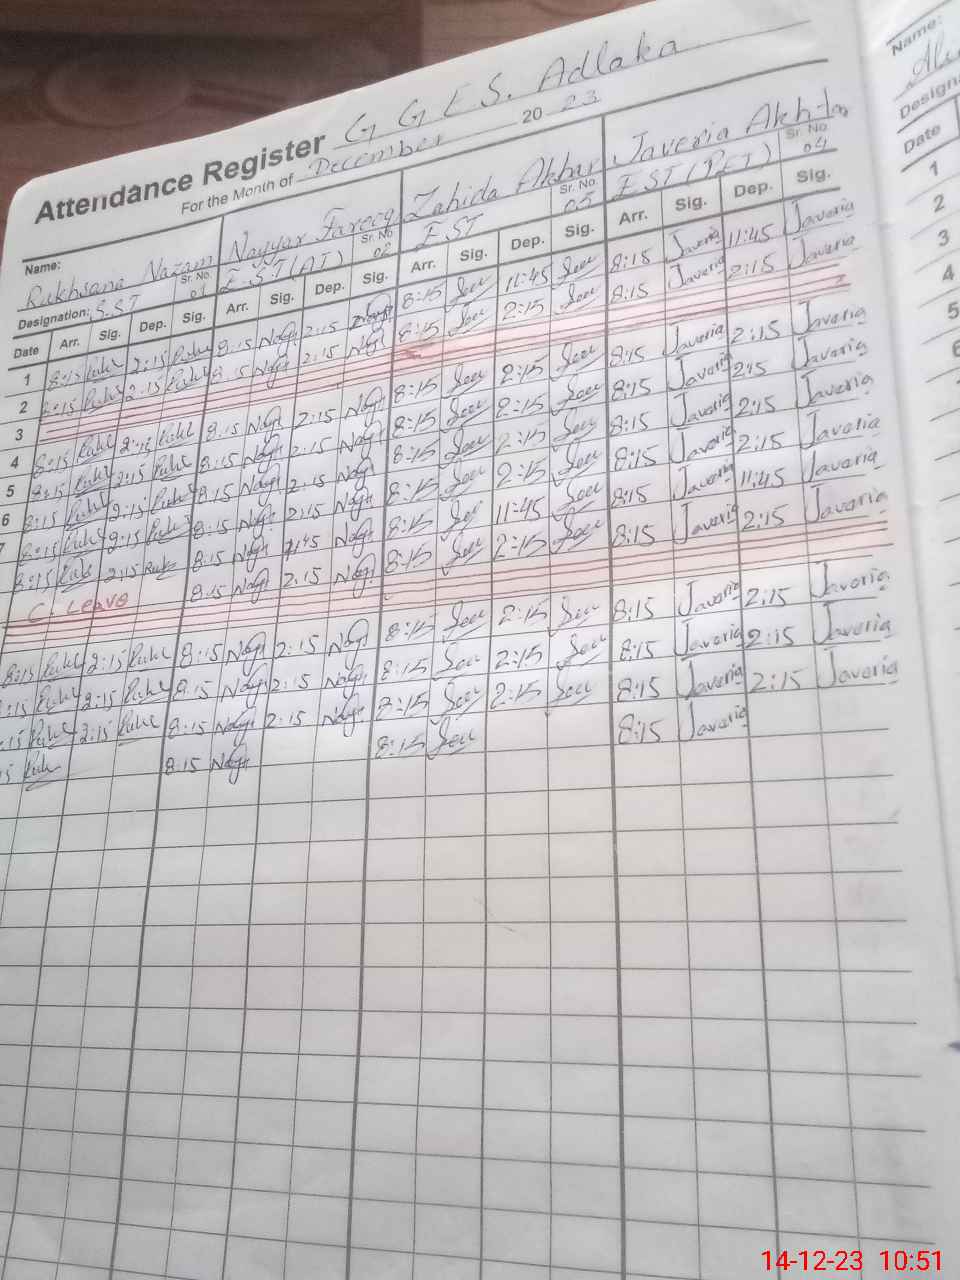 Attendance Register G G E S. Adlaka
For the Month of December 20 23
Name: Rukhsana Nazam Nayyar Farooq Zahida Akbar Javeria Akhtar
Designation: S.ST Sr. No. 01 E.ST (AT) Sr. No. 02 EST Sr. No. 05 EST (PET) Sr. No. 04
Date Arr. Sig. Dep. Sig. Arr. Sig. Dep. Sig. Arr. Sig. Dep. Sig. Arr. Sig. Dep. Sig.
1 8:15 Rukh 2:15 Rukh 8:15 Nayy 2:15 8:15 11:45 8:15 Javeria 11:45 Javeria
2 8:15 Rukh 2:15 Rukh 8:15 Nayy 2:15 Nayy 8:15 2:15 8:15 Javeria 2:15 Javeria
3
4 8:15 Rukh 2:15 Rukh 8:15 Nayy 2:15 Nayy 8:15 2:15 8:15 Javeria 2:15 Javeria
5 8:15 Rukh 2:15 Rukh 8:15 Nayy 2:15 Nayy 8:15 2:15 8:15 Javeria 2:15 Javeria
6 8:15 Rukh 2:15 Rukh 8:15 Nayy 2:15 Nayy 8:15 2:15 8:15 Javeria 2:15 Javeria
7 8:15 Rukh 2:15 Rukh 8:15 Nayy 2:15 Nayy 8:15 2:15 8:15 Javeria 2:15 Javeria
8:15 Rukh 8:15 Nayy 11:45 Nayy 8:15 11:45 8:15 Javeria 11:45 Javeria
C. Leave 8:15 Nayy 2:15 Nayy 8:15 2:15 8:15 Javeria 2:15 Javeria
8:15 Rukh 2:15 Rukh 8:15 Nayy 2:15 Nayy 8:15 2:15 8:15 Javeria 2:15 Javeria
:15 Rukh 2:15 Rukh 8:15 Nayy 2:15 Nayy 8:15 2:15 8:15 Javeria 2:15 Javeria
:15 Rukh 2:15 Rukh 8:15 Nayy 2:15 Nayy 8:15 2:15 8:15 Javeria 2:15 Javeria
5 Rukh 8:15 Nayy 8:15 8:15 Javeria
Name:
Design
Date
1
2
3
4
5
6
14-12-23 10:51